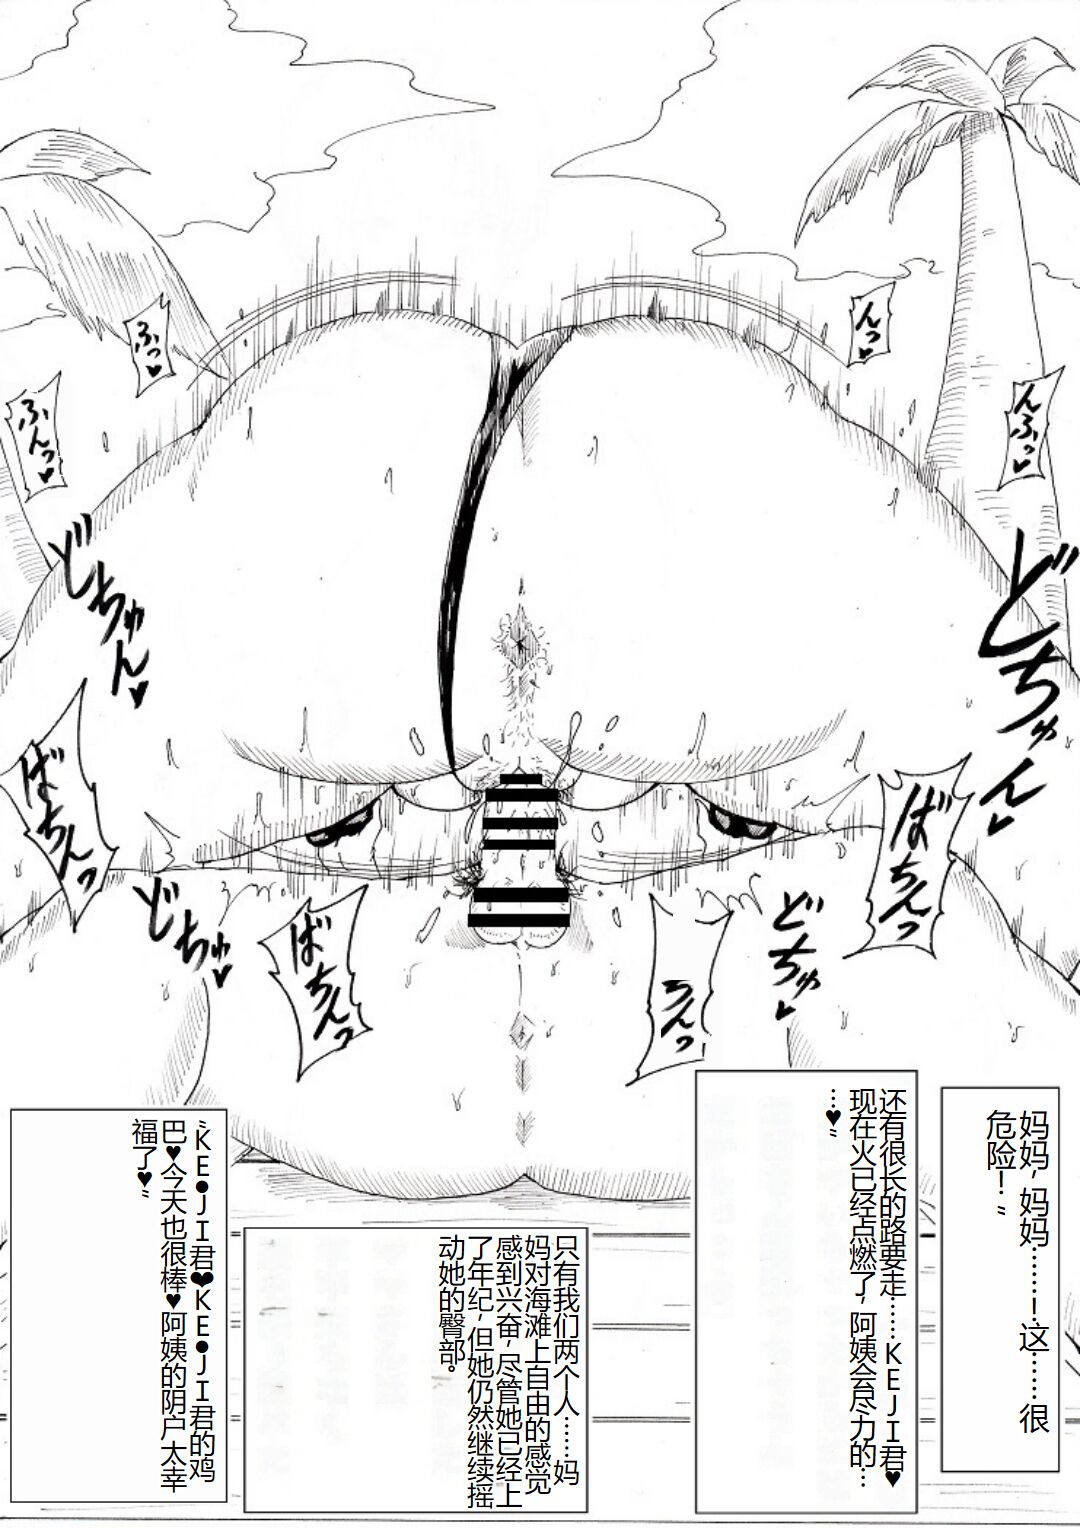 んっ♥
ふっ♥
んふっ♥
ふんっ♥
どちゅん♥
どちゅん♥
ばちんっ
ばちんっ
どちゅ♥
どちゅ♥
ちんっ
ばちんっ
妈妈，妈妈……！这……很
危险！〃
还有很长的路要走……KEJI君♥
现在火已经点燃了，阿姨会尽力的…
…♥〃
只有我们两个人……妈
妈对海滩上自由的感觉
感到兴奋，尽管她已经上
了年纪，但她仍然继续摇
动她的臀部。
〝KE●JI君❤KE●JI君的鸡
巴♥今天也很棒♥阿姨的阴户太幸
福了♥〃